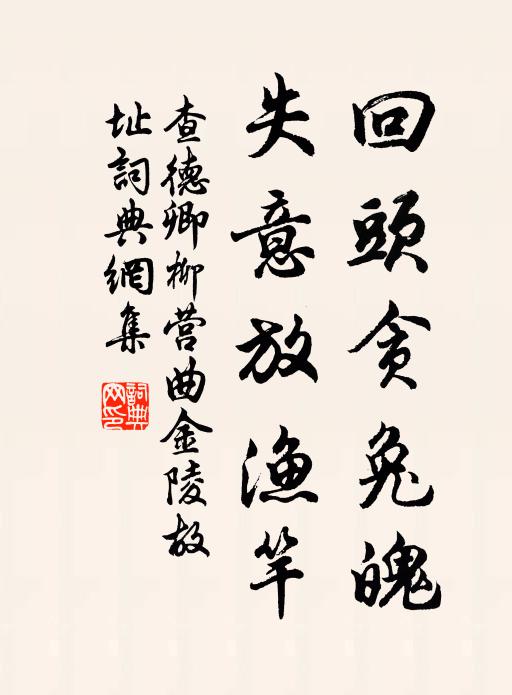 回頭貪兔魄
失意放漁竿
查德卿柳营曲金陵故
址詞典網集
詞典
网印